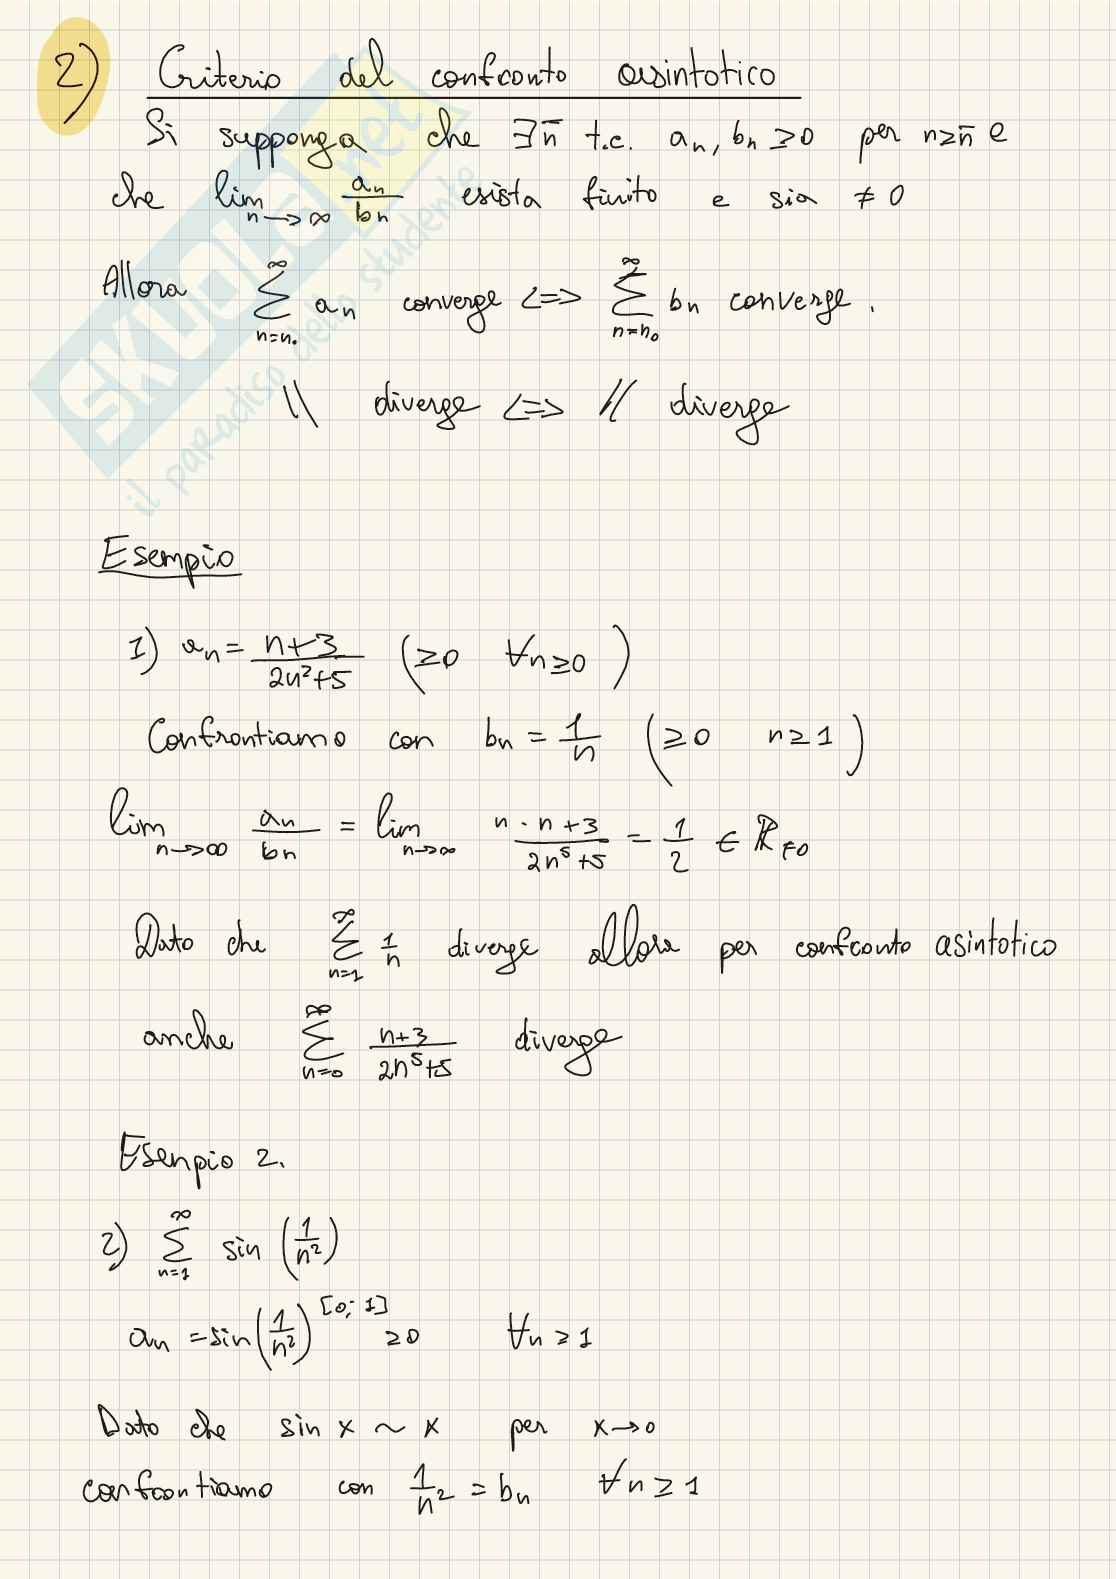 2) Criterio del confronto asintotico
Si supponga che ∃n̄ t.c. aₙ, bₙ ≥0 per n≥n̄ e
che lim n→∞ aₙ/bₙ esista finito e sia ≠ 0
Allora ∑ n=n₀ ∞ aₙ converge <=> ∑ n=n₀ ∞ bₙ converge.
\\ diverge <=> // diverge
Esempio
1) aₙ = n+3 / 2n²+5 (≥0 ∀n≥0)
Confrontiamo con bₙ = 1/n (≥0 n≥1)
lim n→∞ aₙ/bₙ = lim n→∞ n · n+3 / 2n⁵+5 = 1/2 ∈ ℝ≠0
Dato che ∑ n=1 ∞ 1/n diverge allora per confronto asintotico
anche ∑ n=0 ∞ n+3 / 2n⁵+5 diverge
Esenpio 2.
2) ∑ n=1 ∞ sin (1/n²)
aₙ = sin(1/n²) [0; 1] ≥0 ∀n ≥ 1
Dato che sin x ~ x per x→0
confrontiamo con 1/n² = bₙ ∀n ≥ 1
SKUOLA.net
il paradiso dello studente